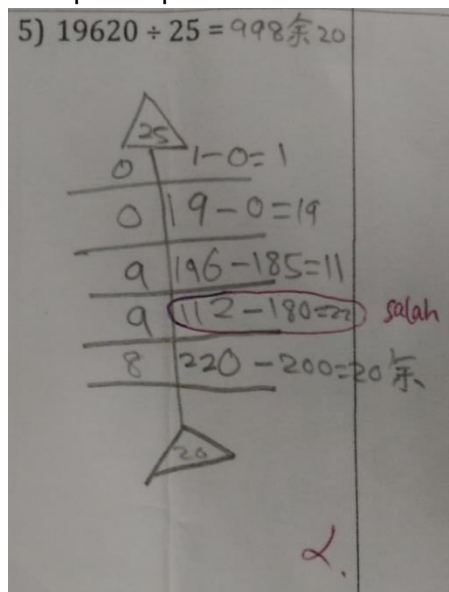 5) 19620 ÷ 25 = 998余20
25
0 1-0=1
0 19-0=19
9 196-185=11
9 112-180=22 salah
8 220-200=20余
20